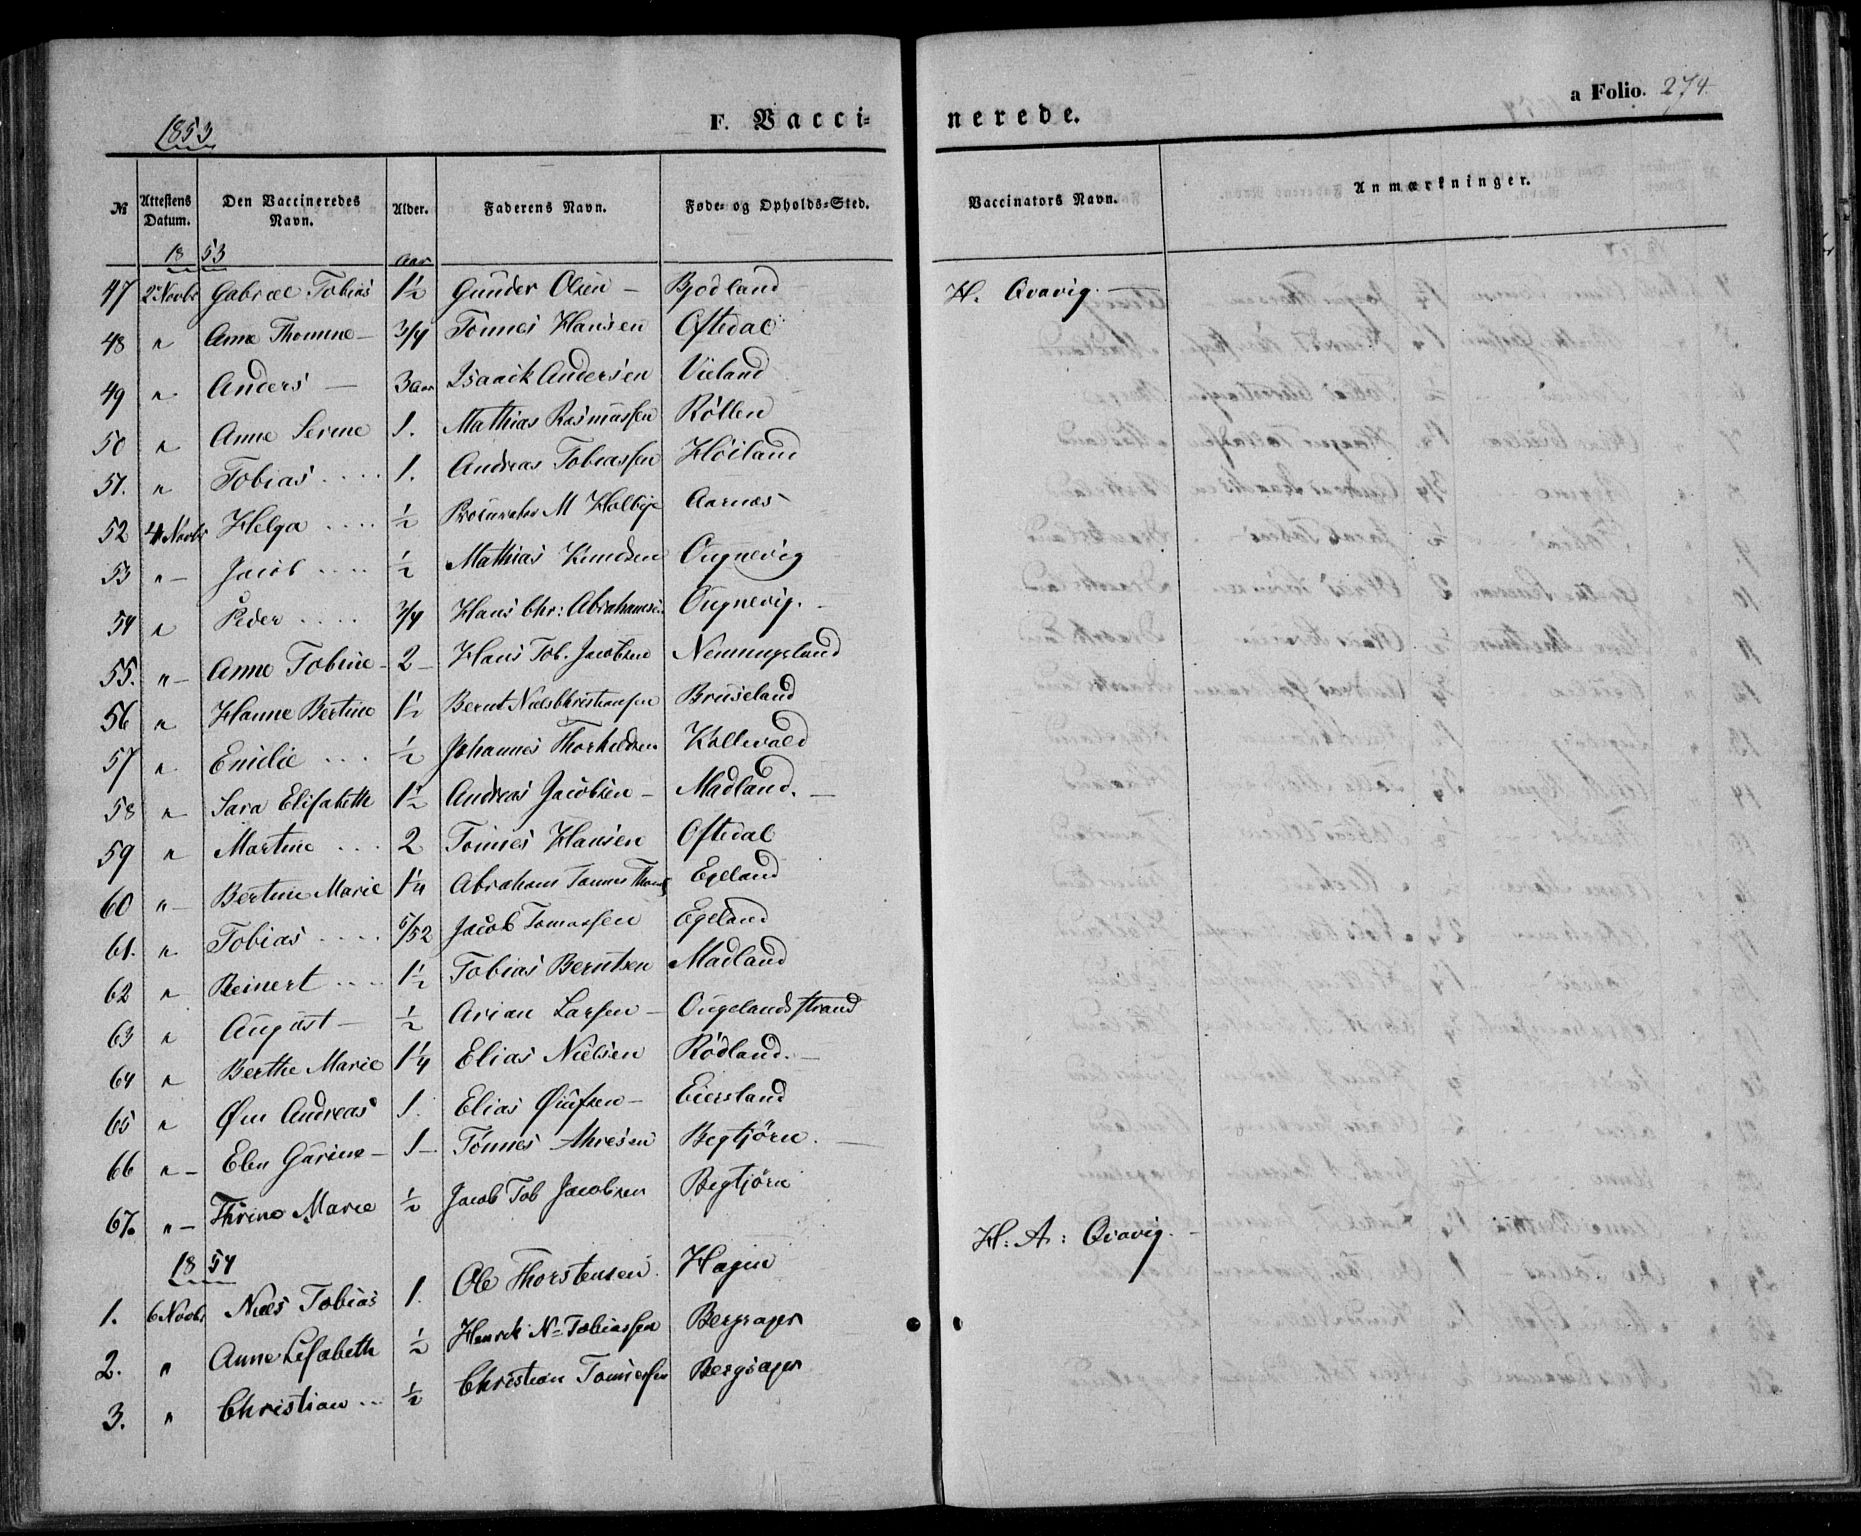 1853
F. Vaccinerede.
a Folio. 274.
№ | Attestens Datum. | Den Vaccineredes Navn. | Alder. | Faderens Navn. | Føde- og Opholds-Sted. | Vaccinators Navn. | Anmærkninger.
1853 | Aar
47 | 2 Novbr | Gabriel Tobias | 1½ | Gunder Olsen – | Bjødland | H. Qvavig. –
48 | " | Anne Thomine – | 3/4 | Tönnes Hansen | Oftedal
49 | " | Anders – | 3 aar | Isaaik Andersen | Vieland
50 | " | Anne Serine | 1. | Mathias Rasmussen | Röllen
51. | " | Tobias .... | 1. | Andreas Tobiassen | Høiland
52 | 4 Novbr | Helga .... | ½ | Procurator M Holbye | Aarnæs
53 | " – | Jacob .... | ½ | Mathias Knudsen | Ougnevig
54 | " | Peder .... | 3/4 | Hans Chr: Abrahamsen | Ougnevig. –
55. | " – | Anne Tobine – | 2 – | Hans Tob. Jacobsen | Nemningsland
56 | " | Hanne Bertine | 1½ | Bernt Niels Christiansen | Bruseland
57 | " | Emilie ... | ½ | Johannes Thorkildsen | Kollevold
58 | " | Sara Elisabeth | 1½ | Andreas Jacobsen – | Madland. –
59 | " | Martine ... | 2 | Tönnes Hansen | Oftedal
60 | " – | Bertine Marie | 1¼ | Abraham Tønnes | Egeland
61. | " | Tobias .... | 5/52 | Jacob Tomassen | Egeland
62 | " | Reinert .... | 1½ | Tobias Berntsen | Madland
63 | " | August – | ½ | Arian Larsen – | Ougelandsstrand
64 | " | Berthe Marie | 1¼ | Elias Nielsen | Rödland. –
65 | " | Andreas | 1. | Elias – | Eiersland
66 | " – | Elen Gurine – | 1 – | Tönnes | Begtjörn. –
67. | " – | Thrine Marie | ½ | Jacob Tob Jacobsen | Begtjörn
1854
1. | 6 Novbr | Niels Tobias | 1. | Ole Thorstensen | Hagen | H: A: Qvavig. –
2. | " | Anne Lisabeth | ½ | Henrik N– Tobiassen | Bergsager
3. | " | Christian .. | ½ | Christian Tönnessen | Bergsager